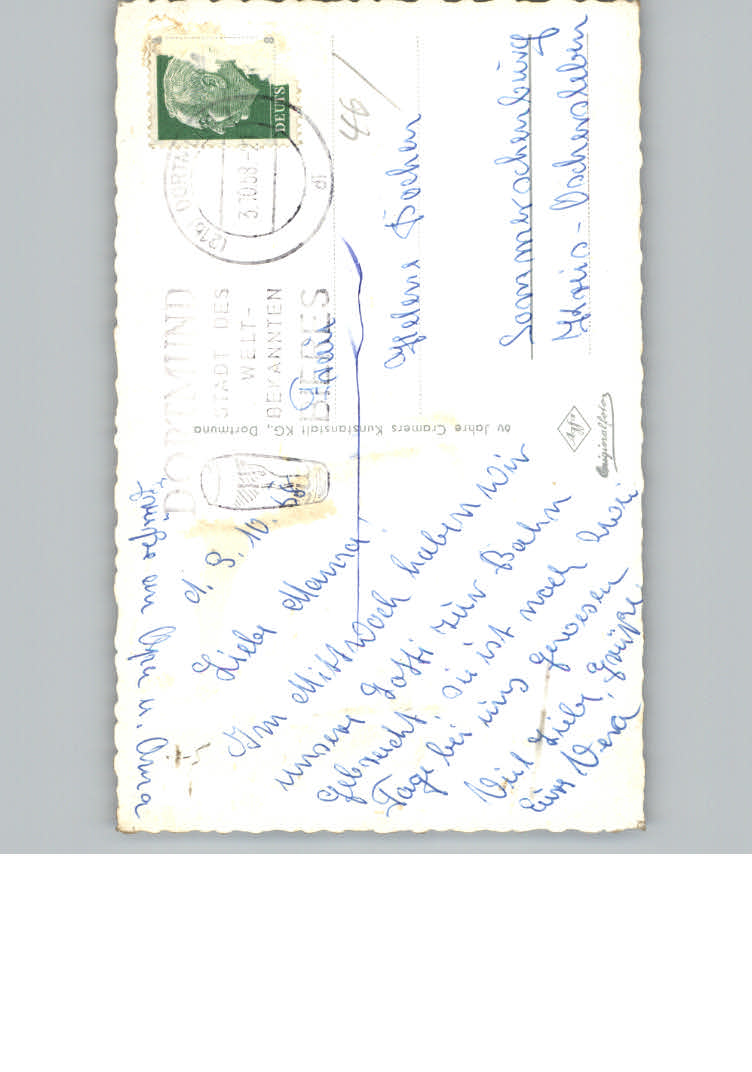 d. 3. 10. 68
Liebe Mama!
Am Mittwoch haben wir
unsere Dotti zur Bahn
gebracht. Sie ist noch zwei
Tage bei uns gewesen
Viel Liebe Grüße,
Eure Vera
Grüße an Opa u. Anna
Frau
Helene
Sommerschenburg
Kreis-Oschersleben
46/
60 Jahre Cramers Kunstanstalt KG., Dortmund
Agfa
Originalfoto
DORTMUND
STADT DES
WELT-
BEKANNTEN
BIERES
(21b) DORTM
3.10.68-2
di
DEUTS
8